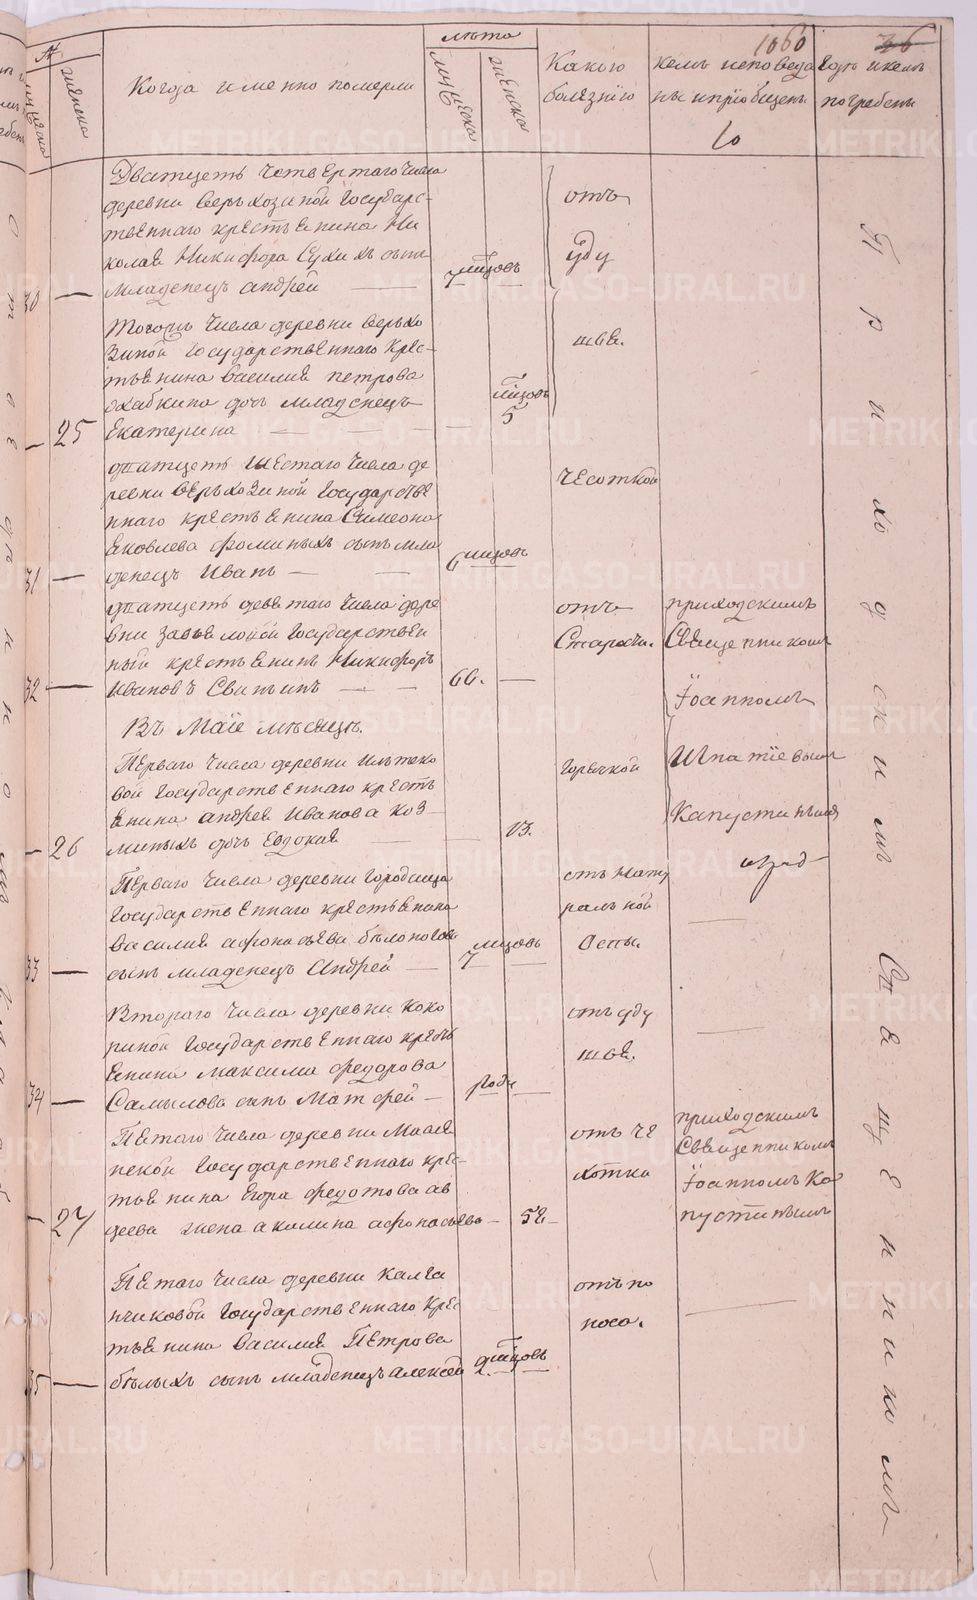 1060
36
№
мужеска
женска
Когда именно померли
лѣта
мужеска
женска
Какою болѣзнію
кемъ исповеданы и пріобщены
Где и кемъ погребены
10
Дватцеть четвертаго числа
деревни Верьхозиной Государс-
твеннаго крестьенина Ни
колая Никифора Сухихъ сынъ
30 — младенецъ Андрей — 7 мѣсяцовъ —
отъ
уду
шьв.
Тогожъ числа деревни Верьхо
зиной Государственнаго Крес-
тьенина Василия Петрова
Охабкина дочь младенецъ
— 25 Екатерина — — — 5 мѣсяцовъ
дватцеть шестаго числа де
ревни Верьхозиной Государстве
ннаго крестьенина Симеона
Яковлева Фоминыхъ сынъ мла
31 — денецъ Иванъ — — 6 мѣсяцовъ —
чесоткой
дватцеть девятаго числа дере
вни Завьеловой Государствен
ный крестьенинъ Никифоръ
32 — Ивановъ Свиньинъ — — 66. —
отъ
Старости.
приходскимъ
Священникомъ
Іоанномъ
Игнатіевымъ
Капустинымъ
Въ Маіе месяцѣ.
Перваго числа деревни
вой Государственнаго кресть
енина Андрея Иванова Коз
— 26 миныхъ дочь Евдокия — — 13.
Горячкой
Перваго числа деревни Городища
Государственнаго крестьенина
Василия Афонасьева Белоногова
33 — сынъ младенецъ Андрей — 7 мѣсяцовъ —
отъ нату
ральной
Оспы.
Втораго числа деревни Коко
риной Государственнаго кресть
енина Максима Федорова
34 — Самылова сынъ Матфей — году —
отъ уду
шья.
Пятаго числа деревни
Государственнаго крес-
тьенина Егора Федотова Ав
— 27 деева жена Акилина Афонасьева — 52 —
отъ че
хотки
приходскимъ
Священникомъ
Іоанномъ Ка
пустинымъ
Пятаго числа деревни Калга
нчиковой Государственнаго Крес
тьенина Василия Петрова
35 — белыхъ сынъ младенецъ Алексей 2 мѣсяцовъ —
отъ по
носа.
Приходскимъ Священникомъ
METRIKI.GASO-URAL.RU